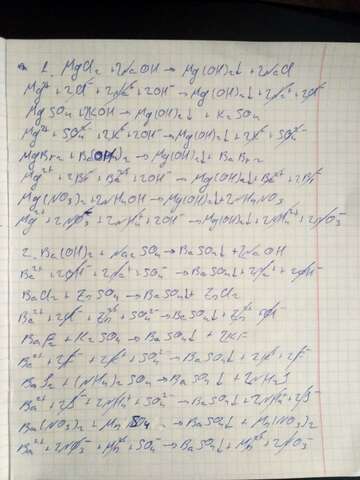 1. MgCl₂ + 2NaOH → Mg(OH)₂↓ + 2NaCl
Mg²⁺ + 2Cl⁻ + 2Na⁺ + 2OH⁻ → Mg(OH)₂↓ + 2Na⁺ + 2Cl⁻
MgSO₄ 2KOH → Mg(OH)₂↓ + K₂SO₄
Mg²⁺ + SO₄²⁻ + 2K⁺ + 2OH⁻ → Mg(OH)₂↓ + 2K⁺ + SO₄²⁻
MgBr₂ + Ba(OH)₂ → Mg(OH)₂↓ + BaBr₂
Mg²⁺ + 2Br⁻ + Ba²⁺ + 2OH⁻ → Mg(OH)₂↓ + Ba²⁺ + 2Br⁻
Mg(NO₃)₂ + 2NH₄OH → Mg(OH)₂↓ + 2NH₄NO₃
Mg²⁺ + 2NO₃⁻ + 2NH₄⁺ + 2OH⁻ → Mg(OH)₂↓ + 2NH₄⁺ + 2NO₃⁻
2. Ba(OH)₂ + Na₂SO₄ → BaSO₄↓ + 2NaOH
Ba²⁺ + 2OH⁻ + 2Na⁺ + SO₄²⁻ → BaSO₄↓ + 2Na⁺ + 2OH⁻
BaCl₂ + ZnSO₄ → BaSO₄↓ + ZnCl₂
Ba²⁺ + 2Cl⁻ + Zn²⁺ + SO₄²⁻ → BaSO₄↓ + Zn²⁺ + 2Cl⁻
BaF₂ + K₂SO₄ → BaSO₄↓ + 2KF
Ba²⁺ + 2F⁻ + 2K⁺ + SO₄²⁻ → BaSO₄↓ + 2K⁺ + 2F⁻
BaJ₂ + (NH₄)₂SO₄ → BaSO₄↓ + 2NH₄J
Ba²⁺ + 2J⁻ + 2NH₄⁺ + SO₄²⁻ → BaSO₄↓ + 2NH₄⁺ + 2J⁻
Ba(NO₃)₂ + MnSO₄ → BaSO₄↓ + Mn(NO₃)₂
Ba²⁺ + 2NO₃⁻ + Mn²⁺ + SO₄²⁻ → BaSO₄↓ + Mn²⁺ + 2NO₃⁻